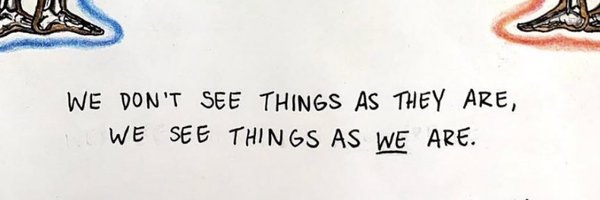 WE DON'T SEE THINGS AS THEY ARE,
WE SEE THINGS AS WE ARE.